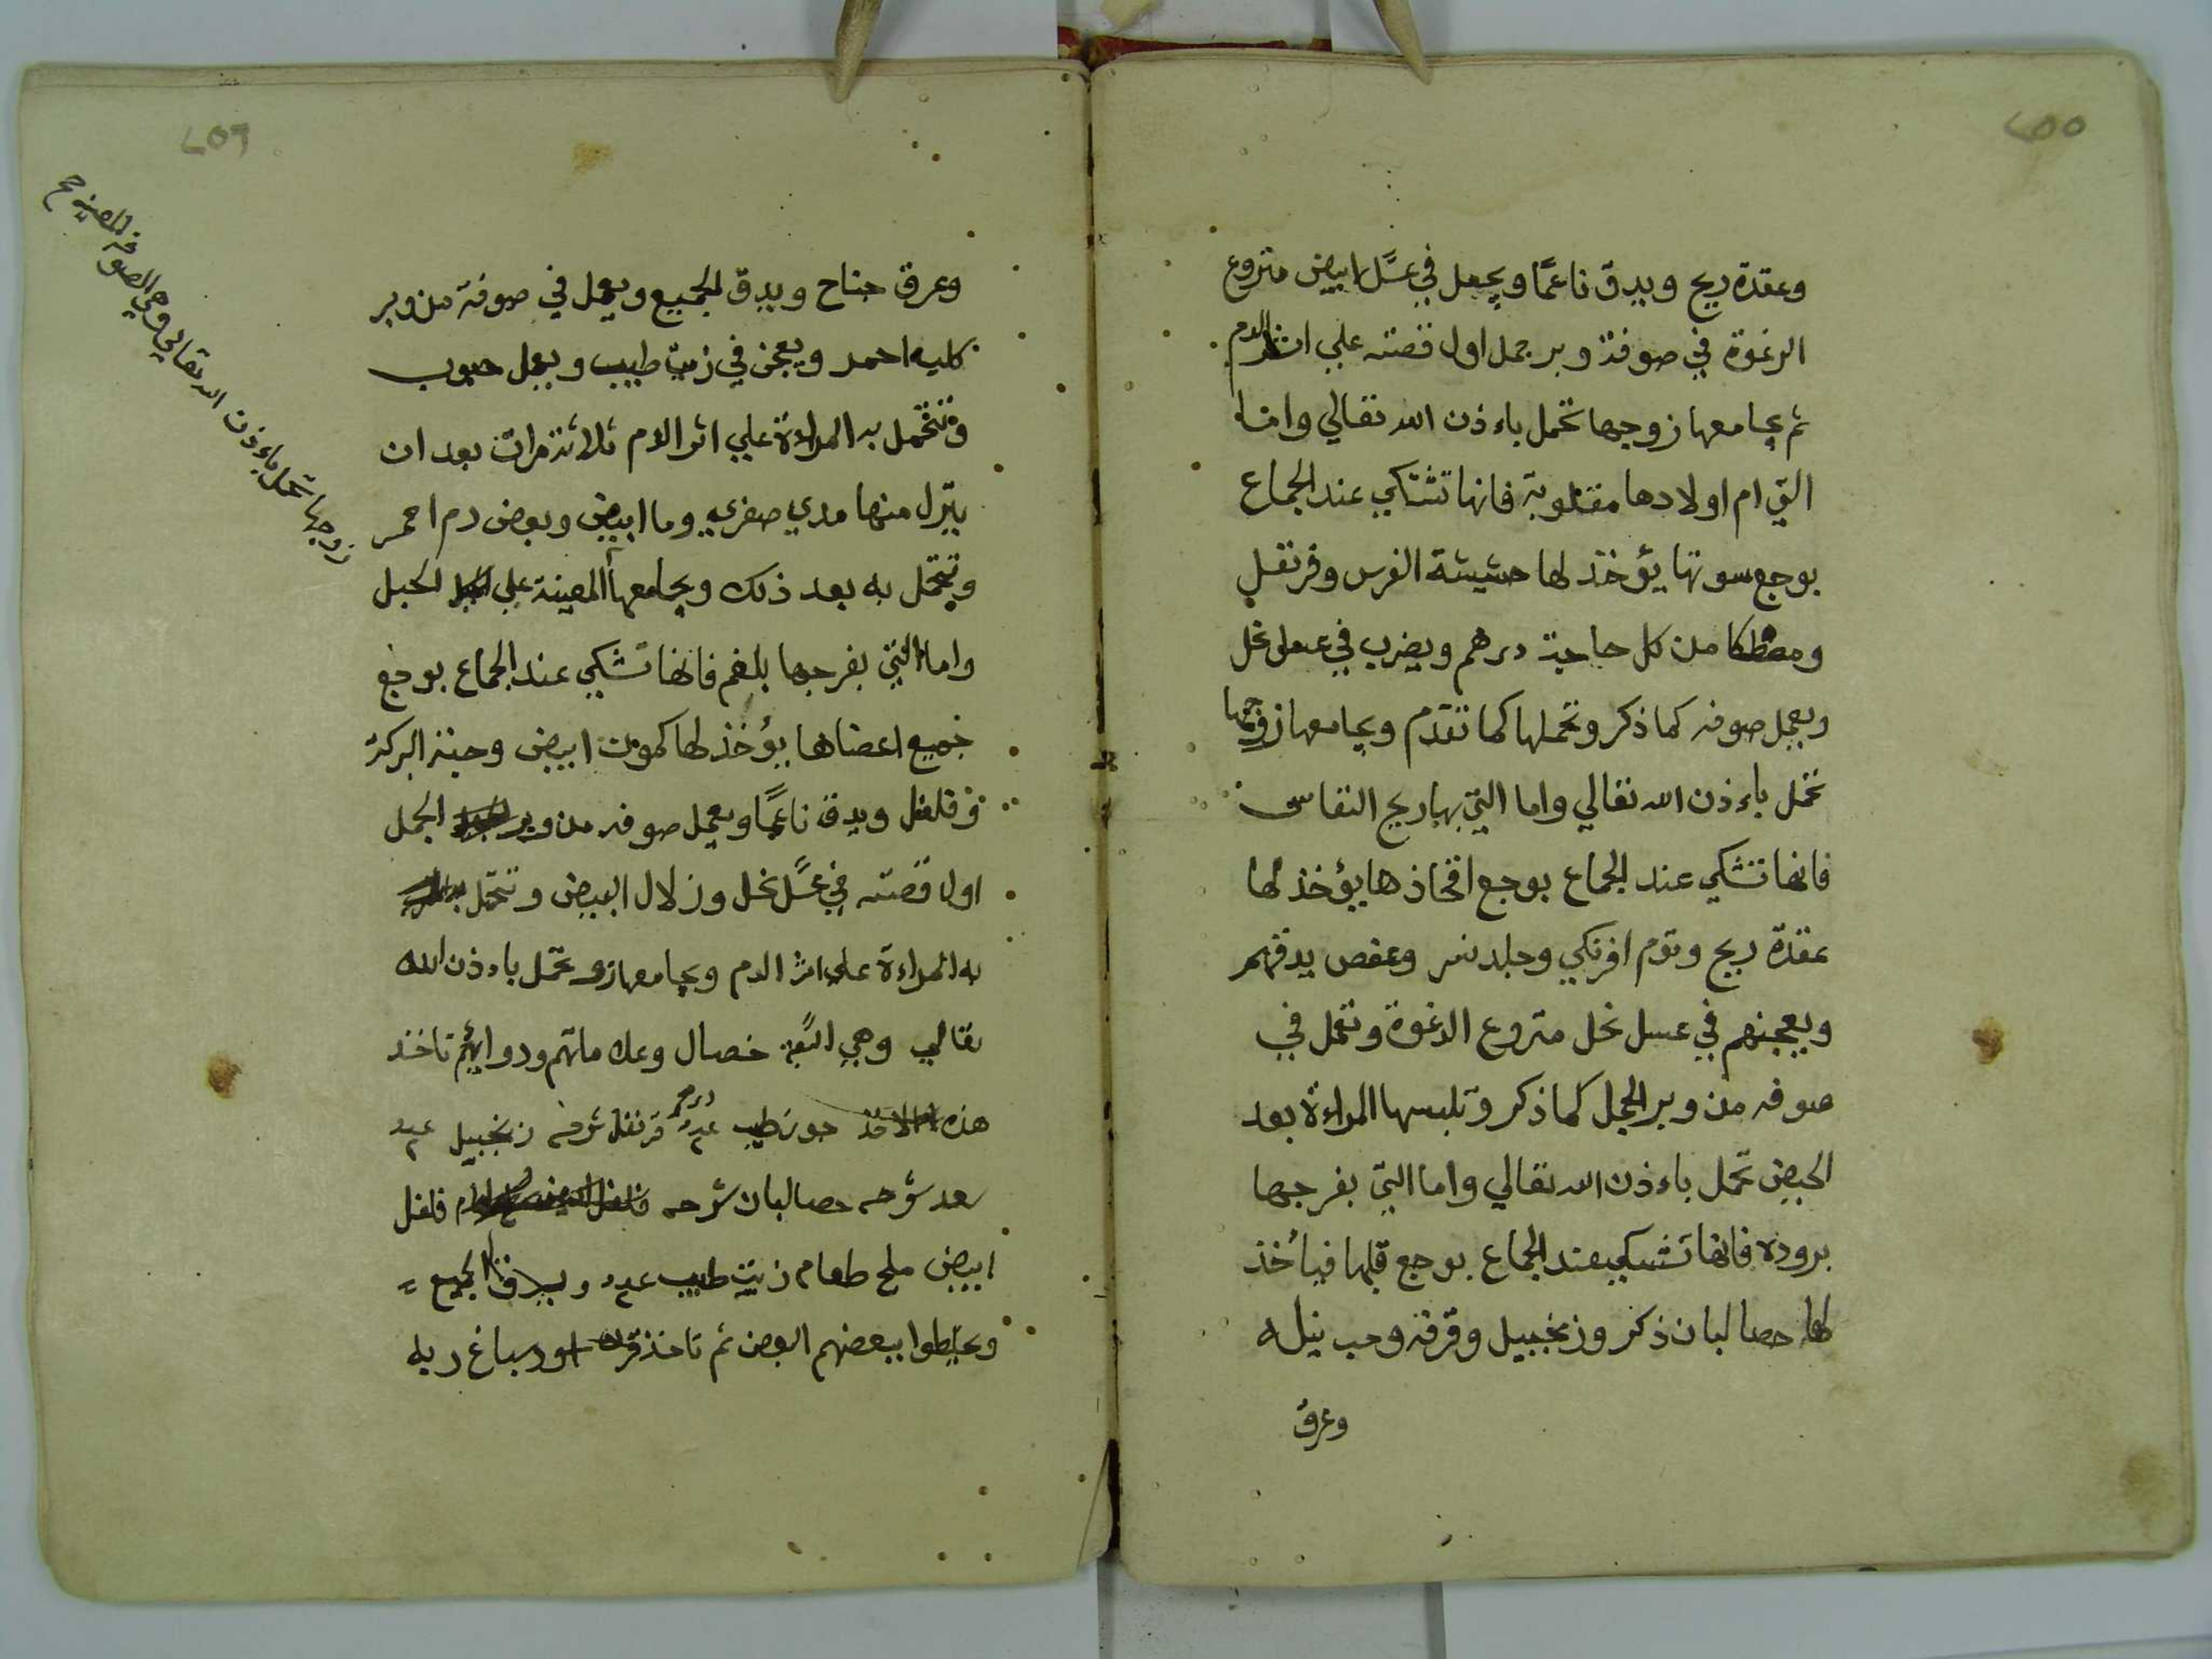 ٢٥٥
وعقدة ريح ويدق ناعمًا ويجعل في عسًل ابيض متزوع
الرغوة في صوفة وبر جمل اول قصته علي اثر الدم
ثم يجامعها زوجها تحمل باءذن الله تعالي واما
التي ام اولادها مقلوبة فانها تشتكي عند الجماع
بوجع سوتها يؤخذ لها حشيشة الفرس وقرنفل
ومصطكا من كل حاجة درهم ويضرب في عسل نحل
ويعمل صوفه كما ذكر وتحملها كما تقدم ويجامعها زوجها
تحمل باءذن الله تعالي واما التي بها ريح النفاس
فانها تشكي عند الجماع بوجع افخاذها يؤخذ لها
عقدة ريح وتوم افرنكي وجلد نمر وعفص يدقهم
ويعجنهم في عسل نحل متزوع الرغوة وتعمل في
صوفه من وبر الجمل كما ذكر وتلبسها المراءة بعد
الحيض تحمل باءذن الله تعالي واما التي بفرجها
بروده فانها تشكي عند الجماع بوجع قلبها فيأخذ
لها حصا لبان ذكر وزنجبيل وقرفه وحب نيله
وعرق
٢٥٦
وعرق جناح ويدق الجميع ويعمل في صوفة من وبر
كليه احمد ويعجن في زيت طيب ويعمل حبوب
وتتحمل به المراءة علي اثر الدم ثلاثة مرات بعد ان
ينزل منها مدي صفري وما ابيض وبعض دم احمر
وتتحمل به بعد ذلك ويجامعها المعينة علي الحبل
واما التي بفرجها بلغم فانها تشكي عند الجماع بوجع
جميع اعضاها يؤخذ لها كمون ابيض وحبة البركة
وفلفل ويدق ناعمًا ويعمل صوفه من وبر الجمل
اول قصته في عسًل نحل وزلال البيض وتتحمل
به المراءة علي اثر الدم ويجامعها زو تحمل باءذن الله
تعالي وهي اربعة خصال وعلاماتهم ودوايهم تاخذ
هذه جوز طيب عدد ٢ درهم قرنفل قرفه زنجبيل عدد ٢
سعد حصا لبان فلفل
ابيض ملح طعام زيت طيب عدد ٢ ويدق الجميع
ويخلطوا ببعضهم البعض ثم تاخذ
زوجها تحمل باءذن الله تعالي وهي الصوفه المعينه صح